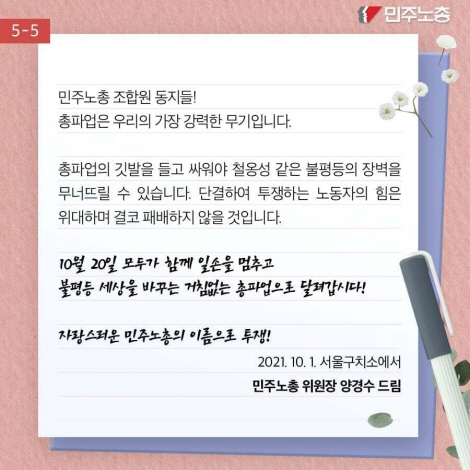 민주노총
5-5
민주노총 조합원 동지들!
총파업은 우리의 가장 강력한 무기입니다.
총파업의 깃발을 들고 싸워야 철옹성 같은 불평등의 장벽을
무너뜨릴 수 있습니다. 단결하여 투쟁하는 노동자의 힘은
위대하며 결코 패배하지 않을 것입니다.
10월 20일 모두가 함께 일손을 멈추고
불평등 세상을 바꾸는 거침없는 총파업으로 달려갑시다!
자랑스러운 민주노총의 이름으로 투쟁!
2021. 10. 1. 서울구치소에서
민주노총 위원장 양경수 드림